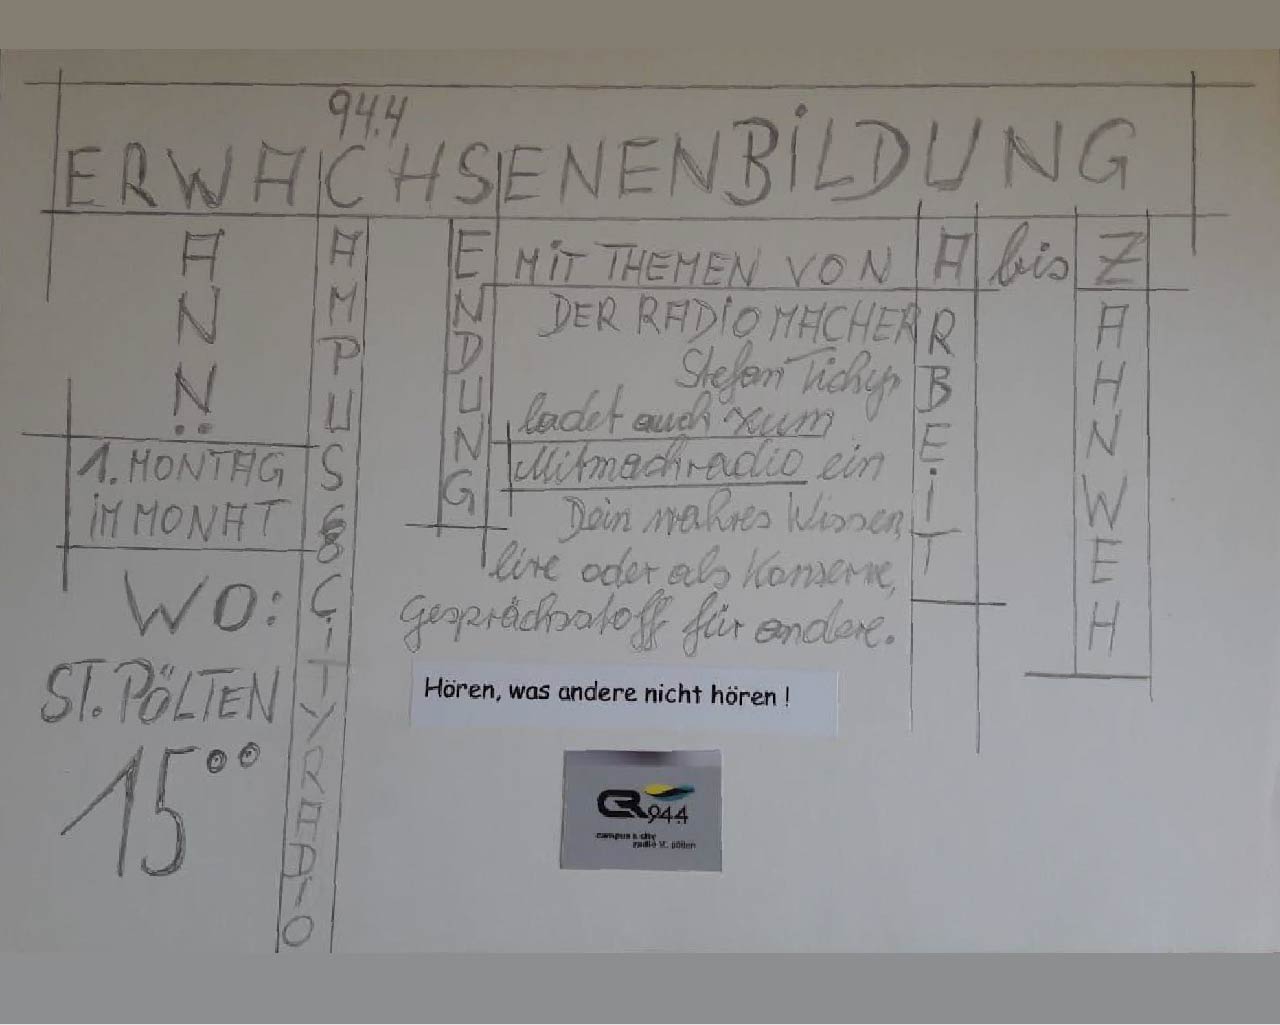 94.4
ERWACHSENENBILDUNG
WANN:
1. MONTAG
iM MONAT
WO:
ST. PÖLTEN
15⁰⁰
CAMPUS & CiTYRADiO
SENDUNG
MiT THEMEN VON A bis Z
DER RADiOMACHER
Stefan Tichy
ladet auch zum
Mitmachradio ein
Dein wahres Wissen,
live oder als Konserve,
Gesprächsstoff für andere.
ARBEiT
ZAHNWEH
Hören, was andere nicht hören !
CR 94.4
campus & city
radio st. pölten